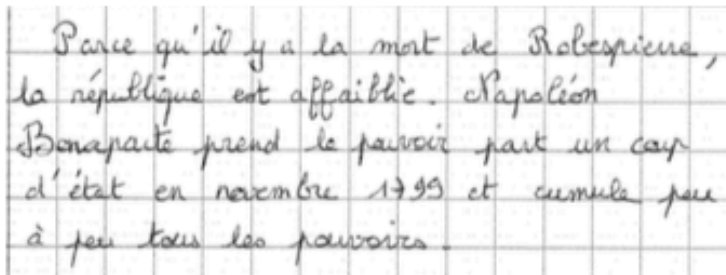 Parce qu'il y a la mort de Robespierre,
la république est affaiblie. Napoléon
Bonaparte prend le pouvoir part un coup
d'état en novembre 1799 et cumule peu
à peu tous les pouvoirs.